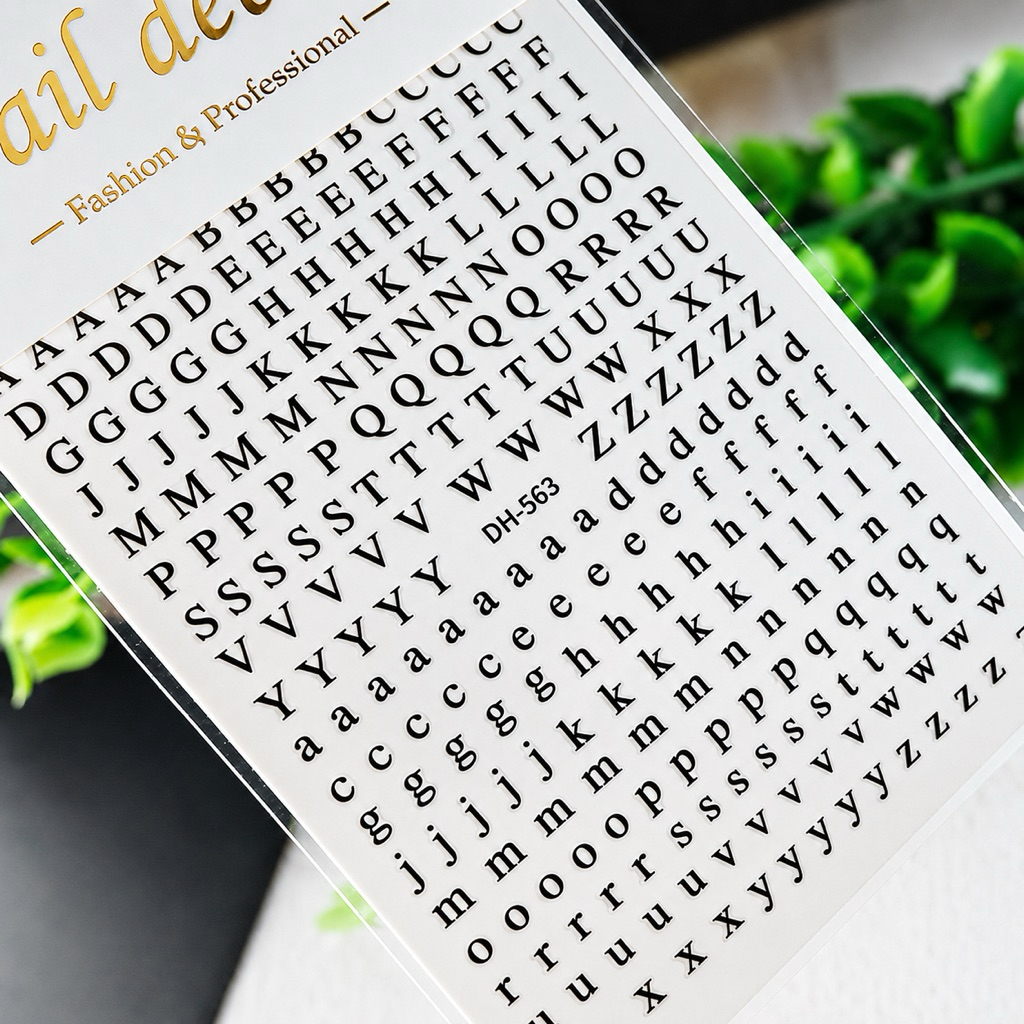 ail de
— Fashion & Professional —
A A A A A B B B B B C C C C C
D D D D D E E E E E F F F F F
G G G G G H H H H H I I I I I
J J J J J K K K K K L L L L L
M M M M N N N N N O O O O
P P P P P Q Q Q Q Q R R R R
S S S S S T T T T T U U U U U
V V V V V W W W W X X X
Y Y Y Y Y DH-563 Z Z Z Z Z Z
a a a a a a a a a d d d d d d d
c c c c c e e e e e f f f f f
g g g g g h h h h h i i i i i
j j j j j k k k k k l l l l l
m m m m m m n n n n n n
o o o o o p p p p p q q q q q
r r r r r s s s s s s t t t t t t
u u u u u v v v v v w w w w
x x x y y y y y z z z z